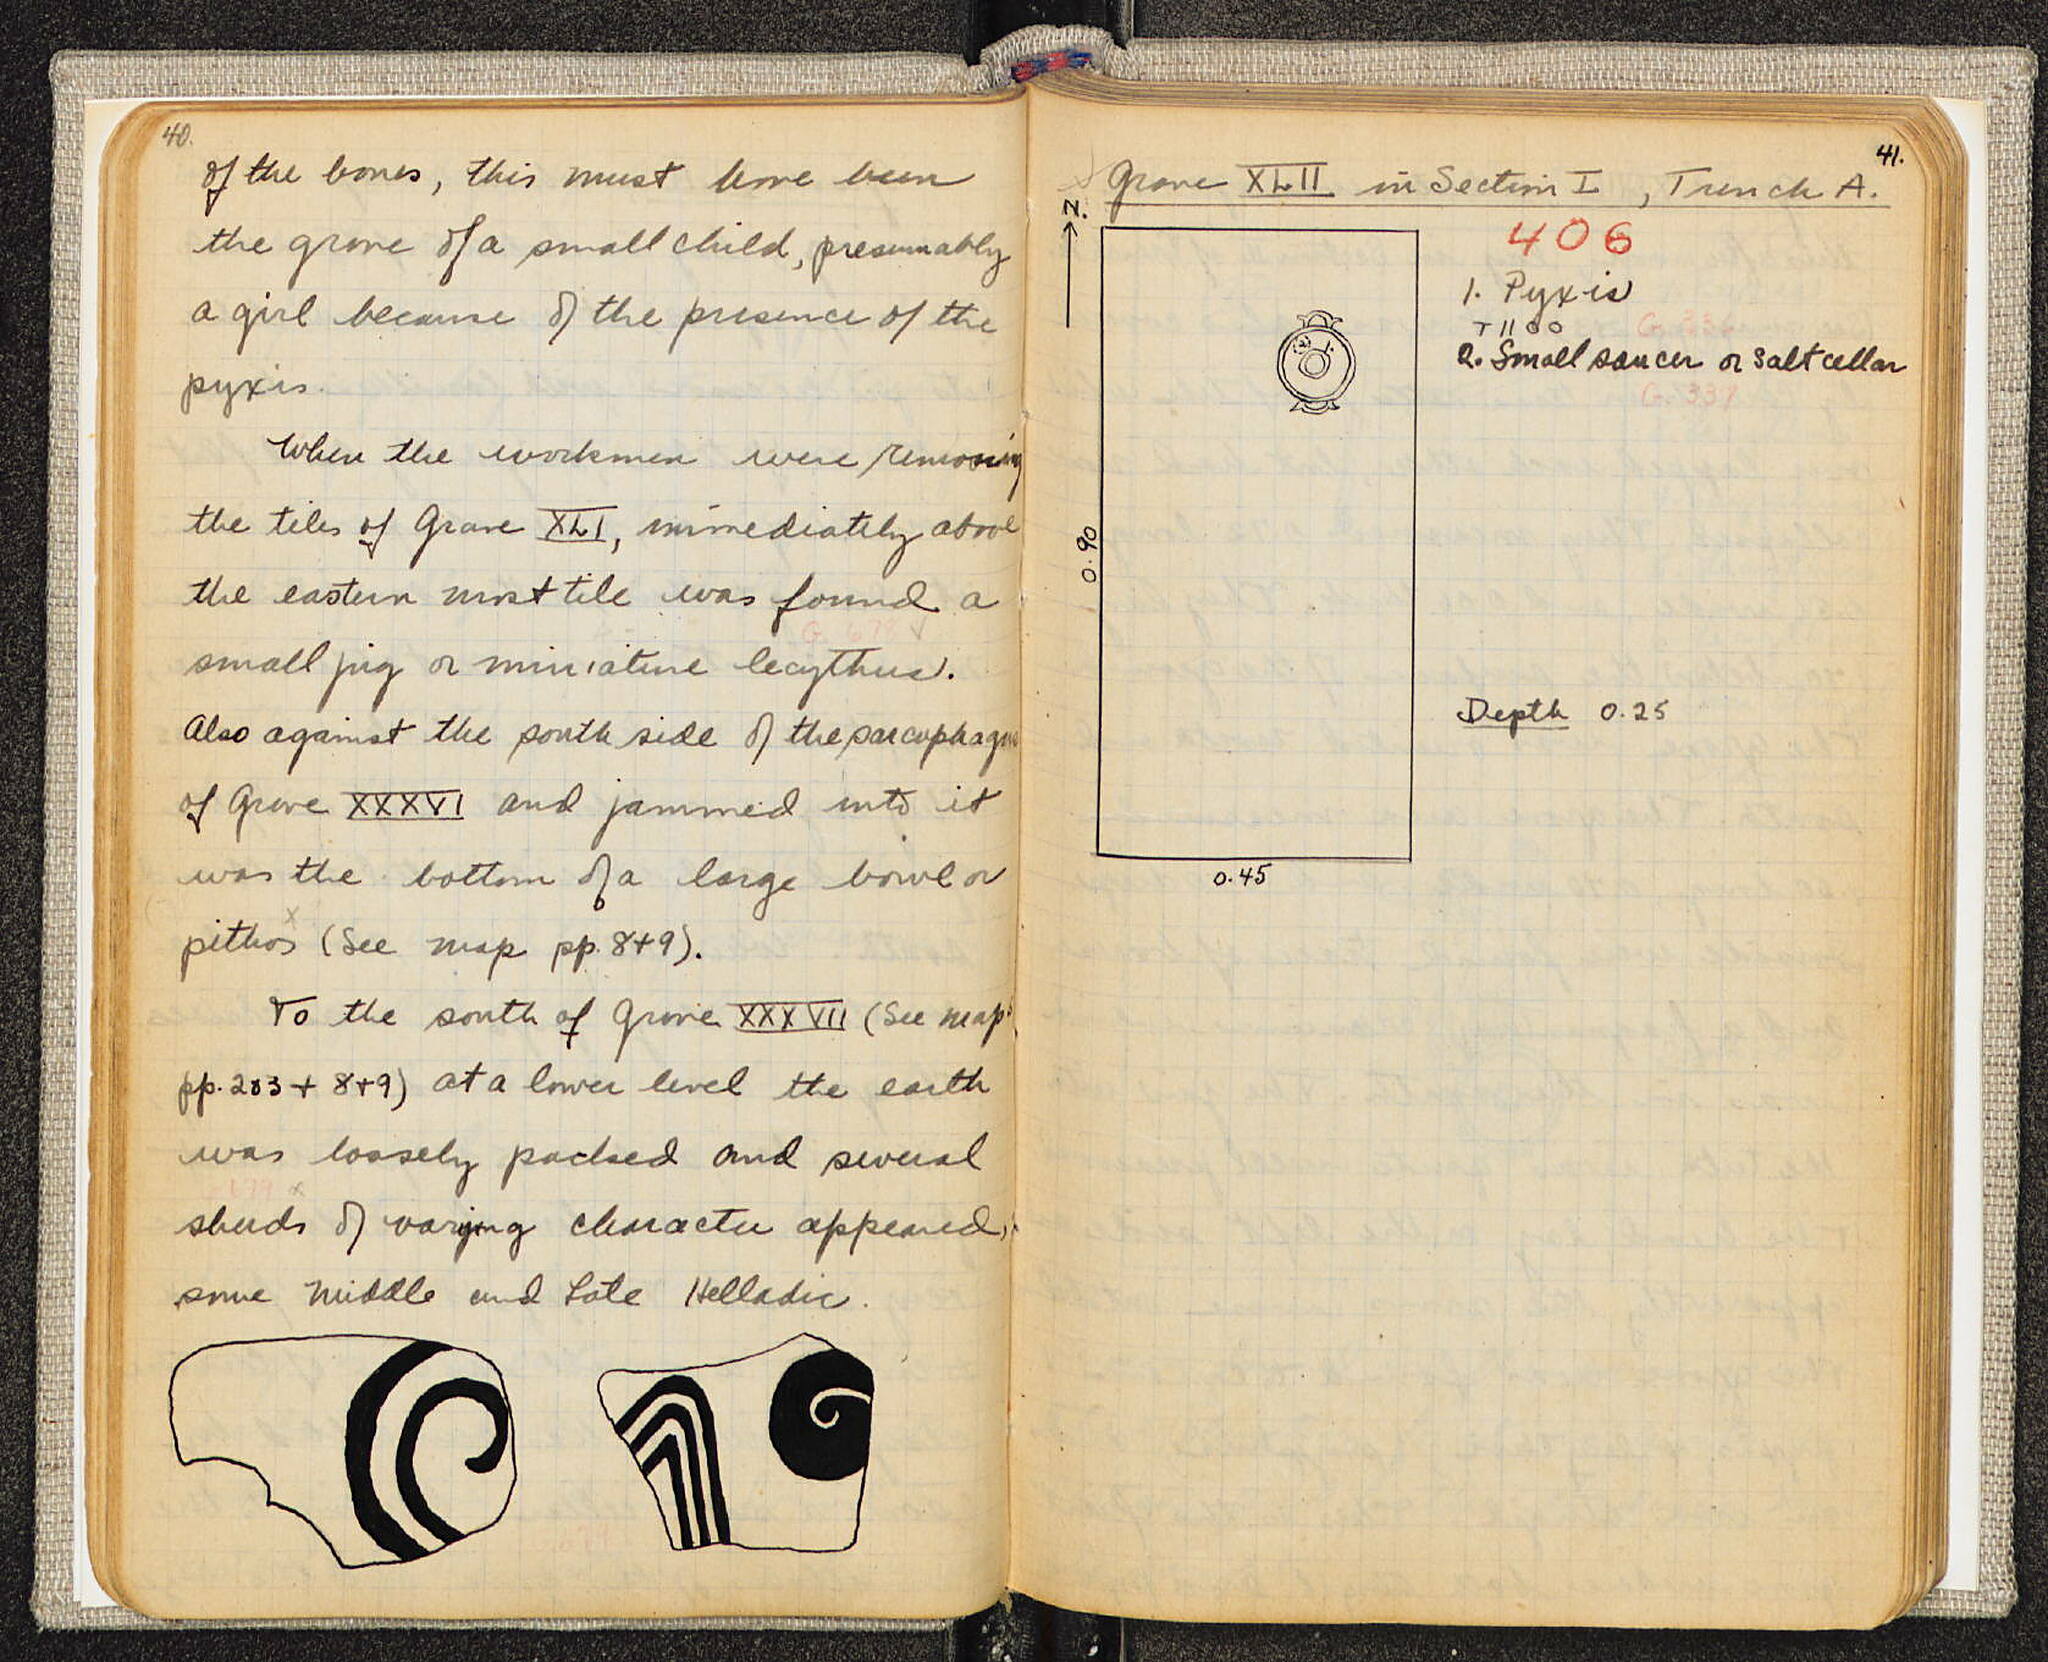 40.
of the bones, this must have been
the grave of a small child, presumably
a girl because of the presence of the
pyxis.
When the workmen were removing
the tiles of Grave XLI, immediately above
the eastern most tile was found a
G. 678
small jug or miniature lecythus.
Also against the south side of the sarcophagus
of Grave XXXVI and jammed into it
was the bottom of a large bowl or
pithos x (See map pp. 8+9).
To the south of Grave XXXVII (See maps
pp. 2+3 + 8+9) at a lower level the earth
was loosely packed and several
679 x
sherds of varying character appeared,
some Middle and Late Helladic.
41.
Grave XLII in Section I, Trench A.
N.
406
1. Pyxis
T 1100
G. 336
2. Small saucer or salt cellar
G. 337
0.90
Depth 0.25
0.45